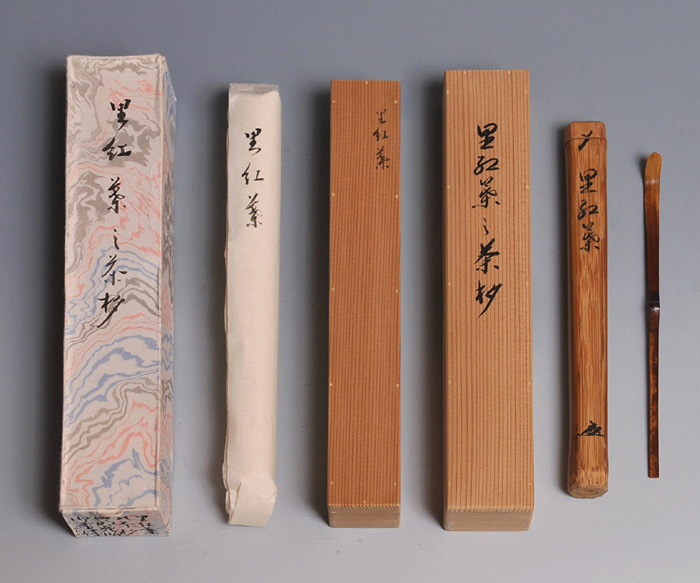 里紅葉之茶杓
里紅葉
里紅葉
里紅葉之茶杓
里紅葉